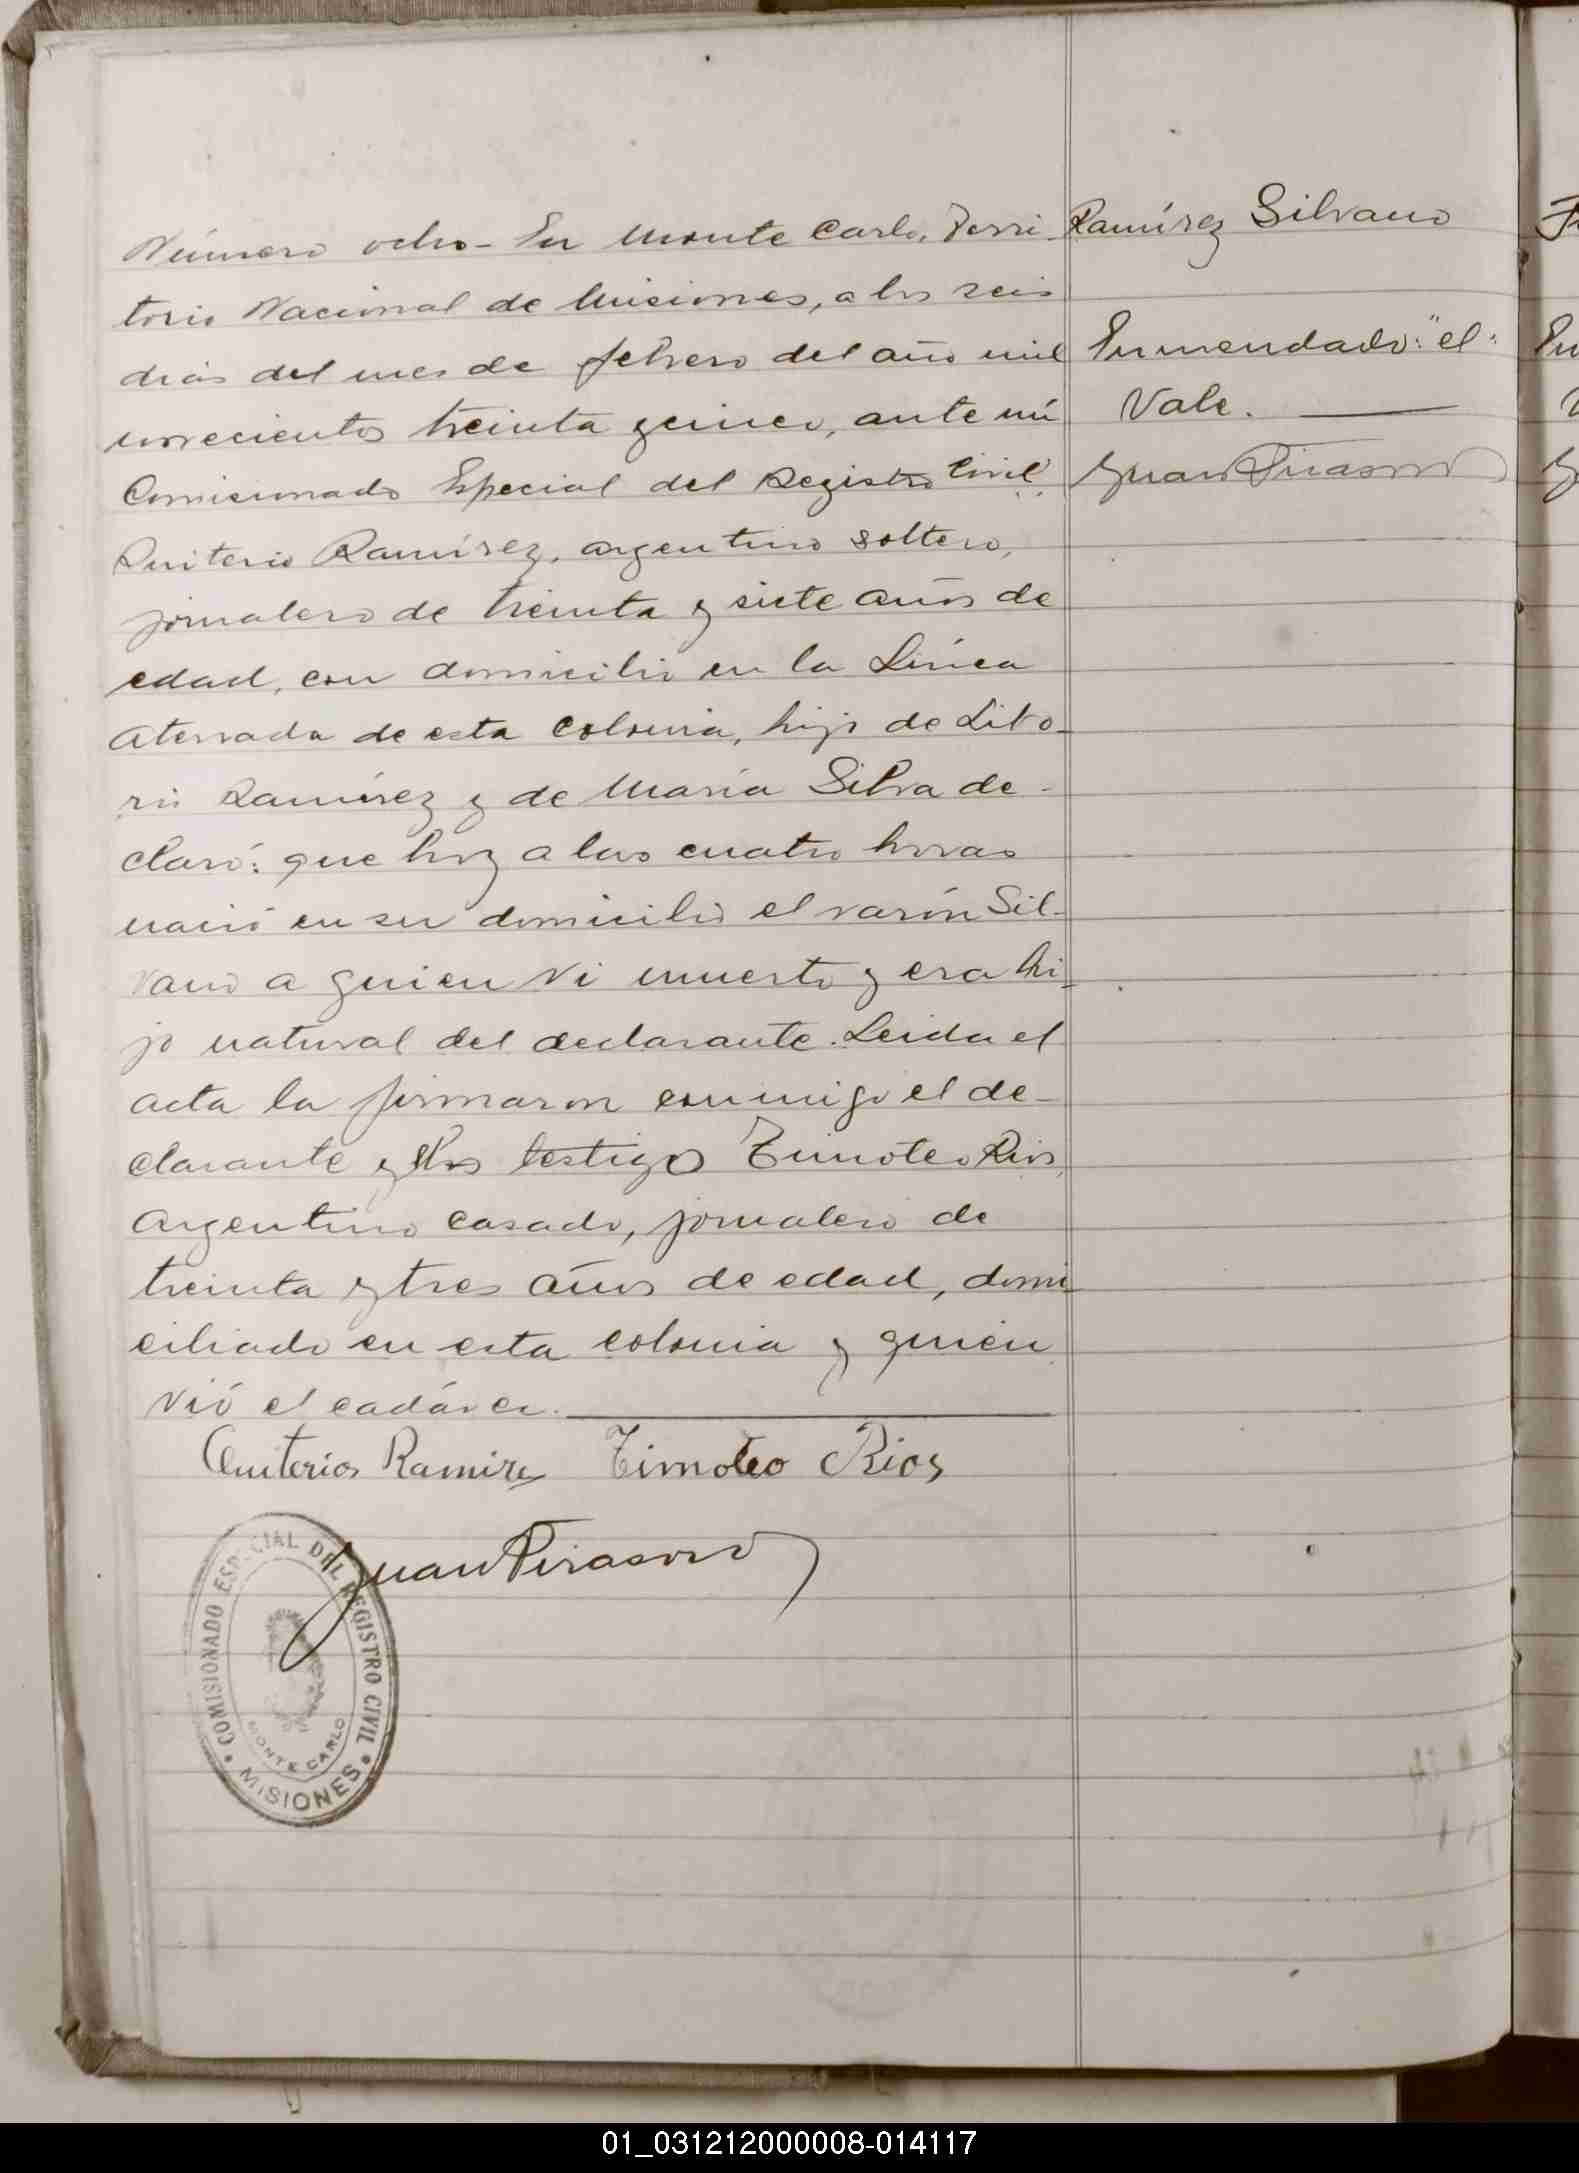 Número ocho - En Monte Carlo, Terri-
torio Nacional de Misiones, a los seis
días del mes de febrero del año mil
novecientos treinta y cinco, ante mí
Comisionado Especial del Registro Civil
Quiterio Ramírez, argentino soltero,
jornalero de treinta y siete años de
edad, con domicilio en la Línea
Aterrada de esta colonia, hijo de Lito-
rio Ramírez y de María Silva de-
claró: que hoy a las cuatro horas
nació en su domicilio el varón Sil-
vano a quien vi muerto y era hi-
jo natural del declarante. Leida el
acta la firmaron conmigo el de-
clarante y el testigo Timoteo Rios,
Argentino casado, jornalero de
treinta y tres años de edad, domi-
ciliado en esta colonia y quien
vió el cadáver.
Quiterios Ramires Timoteo Rios
Juan Pirasoro
COMISIONADO ESPECIAL DEL REGISTRO CIVIL
MONTE CARLO
MISIONES
Ramírez Silvano
Enmendado: "el"
Vale.
Juan Pirasoro
01_031212000008-014117